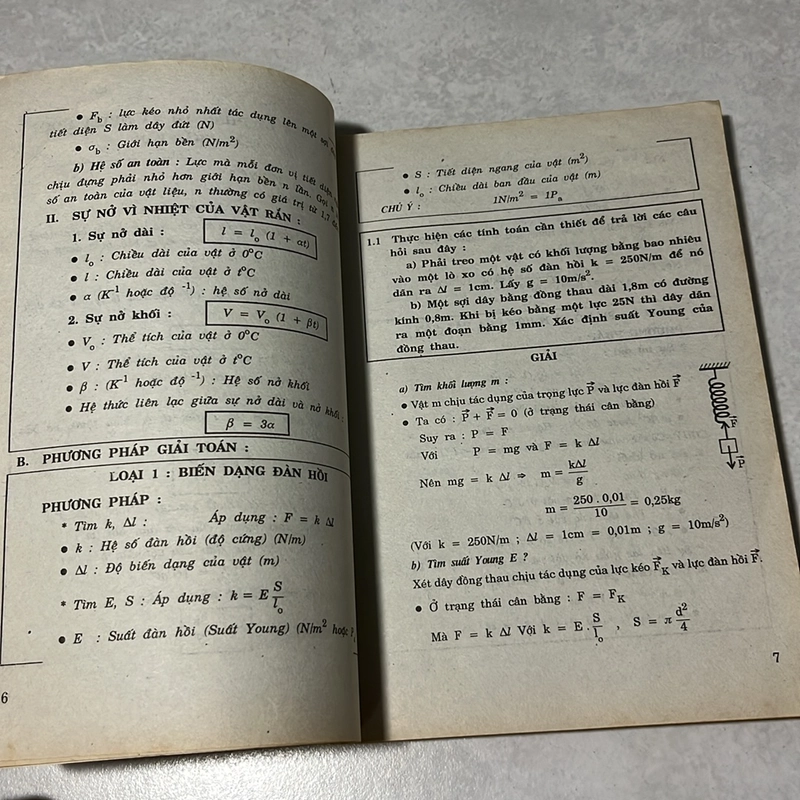 • F_b : lực kéo nhỏ nhất tác dụng lên một sợi
tiết diện S làm dây đứt (N)
• σ_b : Giới hạn bền (N/m²)
b) Hệ số an toàn : Lực mà mỗi đơn vị tiết diện
chịu đựng phải nhỏ hơn giới hạn bền n lần. Gọi n
số an toàn của vật liệu, n thường có giá trị từ 1,7
II. SỰ NỞ VÌ NHIỆT CỦA VẬT RẮN :
1. Sự nở dài : l = l_o (1 + αt)
• l_o : Chiều dài của vật ở 0°C
• l : Chiều dài của vật ở t°C
• α (K⁻¹ hoặc độ ⁻¹) : hệ số nở dài
2. Sự nở khối : V = V_o (1 + βt)
• V_o : Thể tích của vật ở 0°C
• V : Thể tích của vật ở t°C
• β : (K⁻¹ hoặc độ ⁻¹) : Hệ số nở khối
• Hệ thức liên lạc giữa sự nở dài và nở khối :
β = 3α
B. PHƯƠNG PHÁP GIẢI TOÁN :
LOẠI 1 : BIẾN DẠNG ĐÀN HỒI
PHƯƠNG PHÁP :
* Tìm k, Δl : Áp dụng : F = k Δl
• k : Hệ số đàn hồi (độ cứng) (N/m)
• Δl : Độ biến dạng của vật (m)
* Tìm E, S : Áp dụng : k = E S/l_o
• E : Suất đàn hồi (Suất Young) (N/m² hoặc
6
• S : Tiết diện ngang của vật (m²)
• l_o : Chiều dài ban đầu của vật (m)
CHÚ Ý : 1N/m² = 1P_a
1.1 Thực hiện các tính toán cần thiết để trả lời các câu
hỏi sau đây :
a) Phải treo một vật có khối lượng bằng bao nhiêu
vào một lò xo có hệ số đàn hồi k = 250N/m để nó
dãn ra Δl = 1cm. Lấy g = 10m/s².
b) Một sợi dây bằng đồng thau dài 1,8m có đường
kính 0,8m. Khi bị kéo bằng một lực 25N thì dây dãn
ra một đoạn bằng 1mm. Xác định suất Young của
đồng thau.
GIẢI
a) Tìm khối lượng m :
• Vật m chịu tác dụng của trọng lực P⃗ và lực đàn hồi F⃗
• Ta có : P⃗ + F⃗ = 0 (ở trạng thái cân bằng)
Suy ra : P = F
Với P = mg và F = k Δl
Nên mg = k Δl ⇒ m = kΔl/g
m = 250 . 0,01/10 = 0,25kg
F⃗
P⃗
(Với k = 250N/m ; Δl = 1cm = 0,01m ; g = 10m/s²)
b) Tìm suất Young E ?
Xét dây đồng thau chịu tác dụng của lực kéo F⃗_K và lực đàn hồi F⃗.
• Ở trạng thái cân bằng : F = F_K
Mà F = k Δl Với k = E . S/l_o , S = π d²/4
7